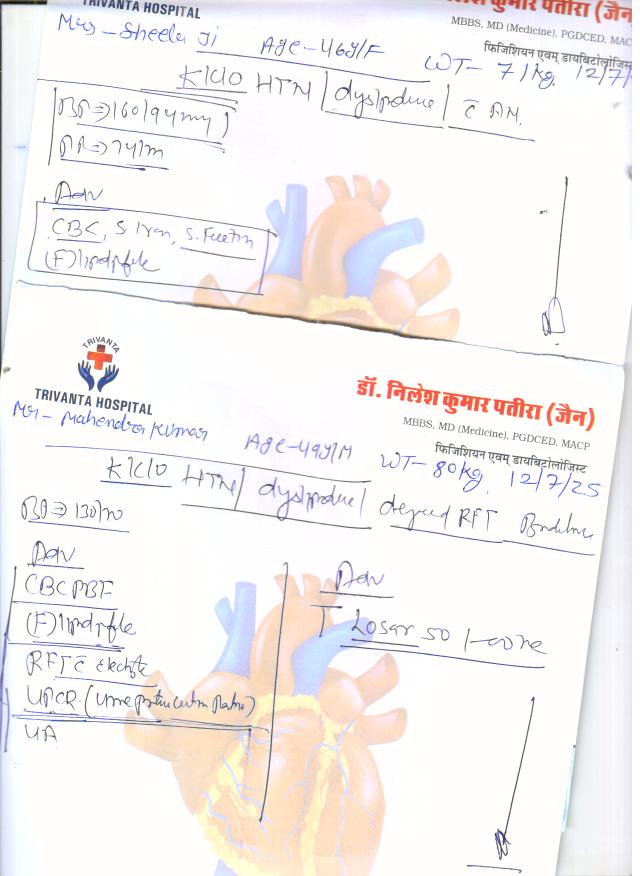 TRIVANTA HOSPITAL
नीलेश कुमार पतीरा (जैन
MBBS, MD (Medicine), PGDCED, MAC
फिजिशियन एवम् डायबिटोलॉजिस्ट
Mrs - Sheela Ji Age - 46y/F WT - 71kg. 12/7/
K/C/O HTN / dyslipidemia / c̄
BP ⇒ 160/94
PR ⇒ 74/m
Adv
CBC, S Iron, S. Ferritin
(F) lipid profile
TRIVANTA
TRIVANTA HOSPITAL
डॉ. निलेश कुमार पतीरा (जैन)
MBBS, MD (Medicine), PGDCED, MACP
फिजिशियन एवम् डायबिटोलॉजिस्ट
Mr - Mahendra Kumar Age - 49y/M WT - 80kg. 12/7/25
K/C/O HTN / / RFT
BP ⇒ 130/70
Adv
CBC PBF
(F) lipid profile
RFT c̄ electrolyte
UPCR (Urine protein creatinine Ratio)
UA
Adv
T Losar 50 1-